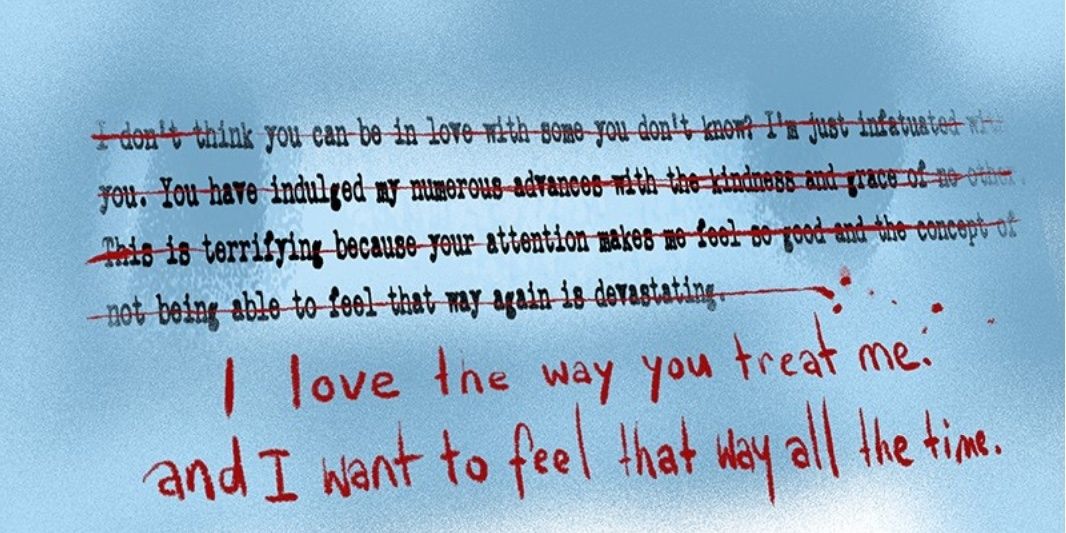 I don't think you can be in love with some you don't know? I'm just infatuated with
you. You have indulged my numerous advances with the kindness and grace of no other.
This is terrifying because your attention makes me feel so good and the concept of
not being able to feel that way again is devastating.
I love the way you treat me.
and I want to feel that way all the time.